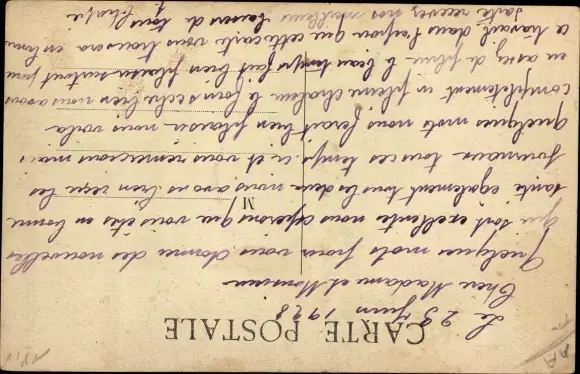 CARTE POSTALE
Le 29 Juin 1928
Cher Madame et Monsieur
Quelques mots pour vous donner des nouvelles
qui sont exellente nous esperons que vous êtes en bonne
santé egalement tous les deux nous avons bien reçu les
M
journaux tous ces temps ci et vous remercions mais
quelques mots nous ferait bien plaisir nous voila
completement en pleine chaleur le foin seche bien nous avons
en assez de pluie le beau temps fait bien plaisir surtout pour
ce travail dans l'espoir que cette carte vous trouvera en bonne
santé recevez nos meilleurs baisers de tous